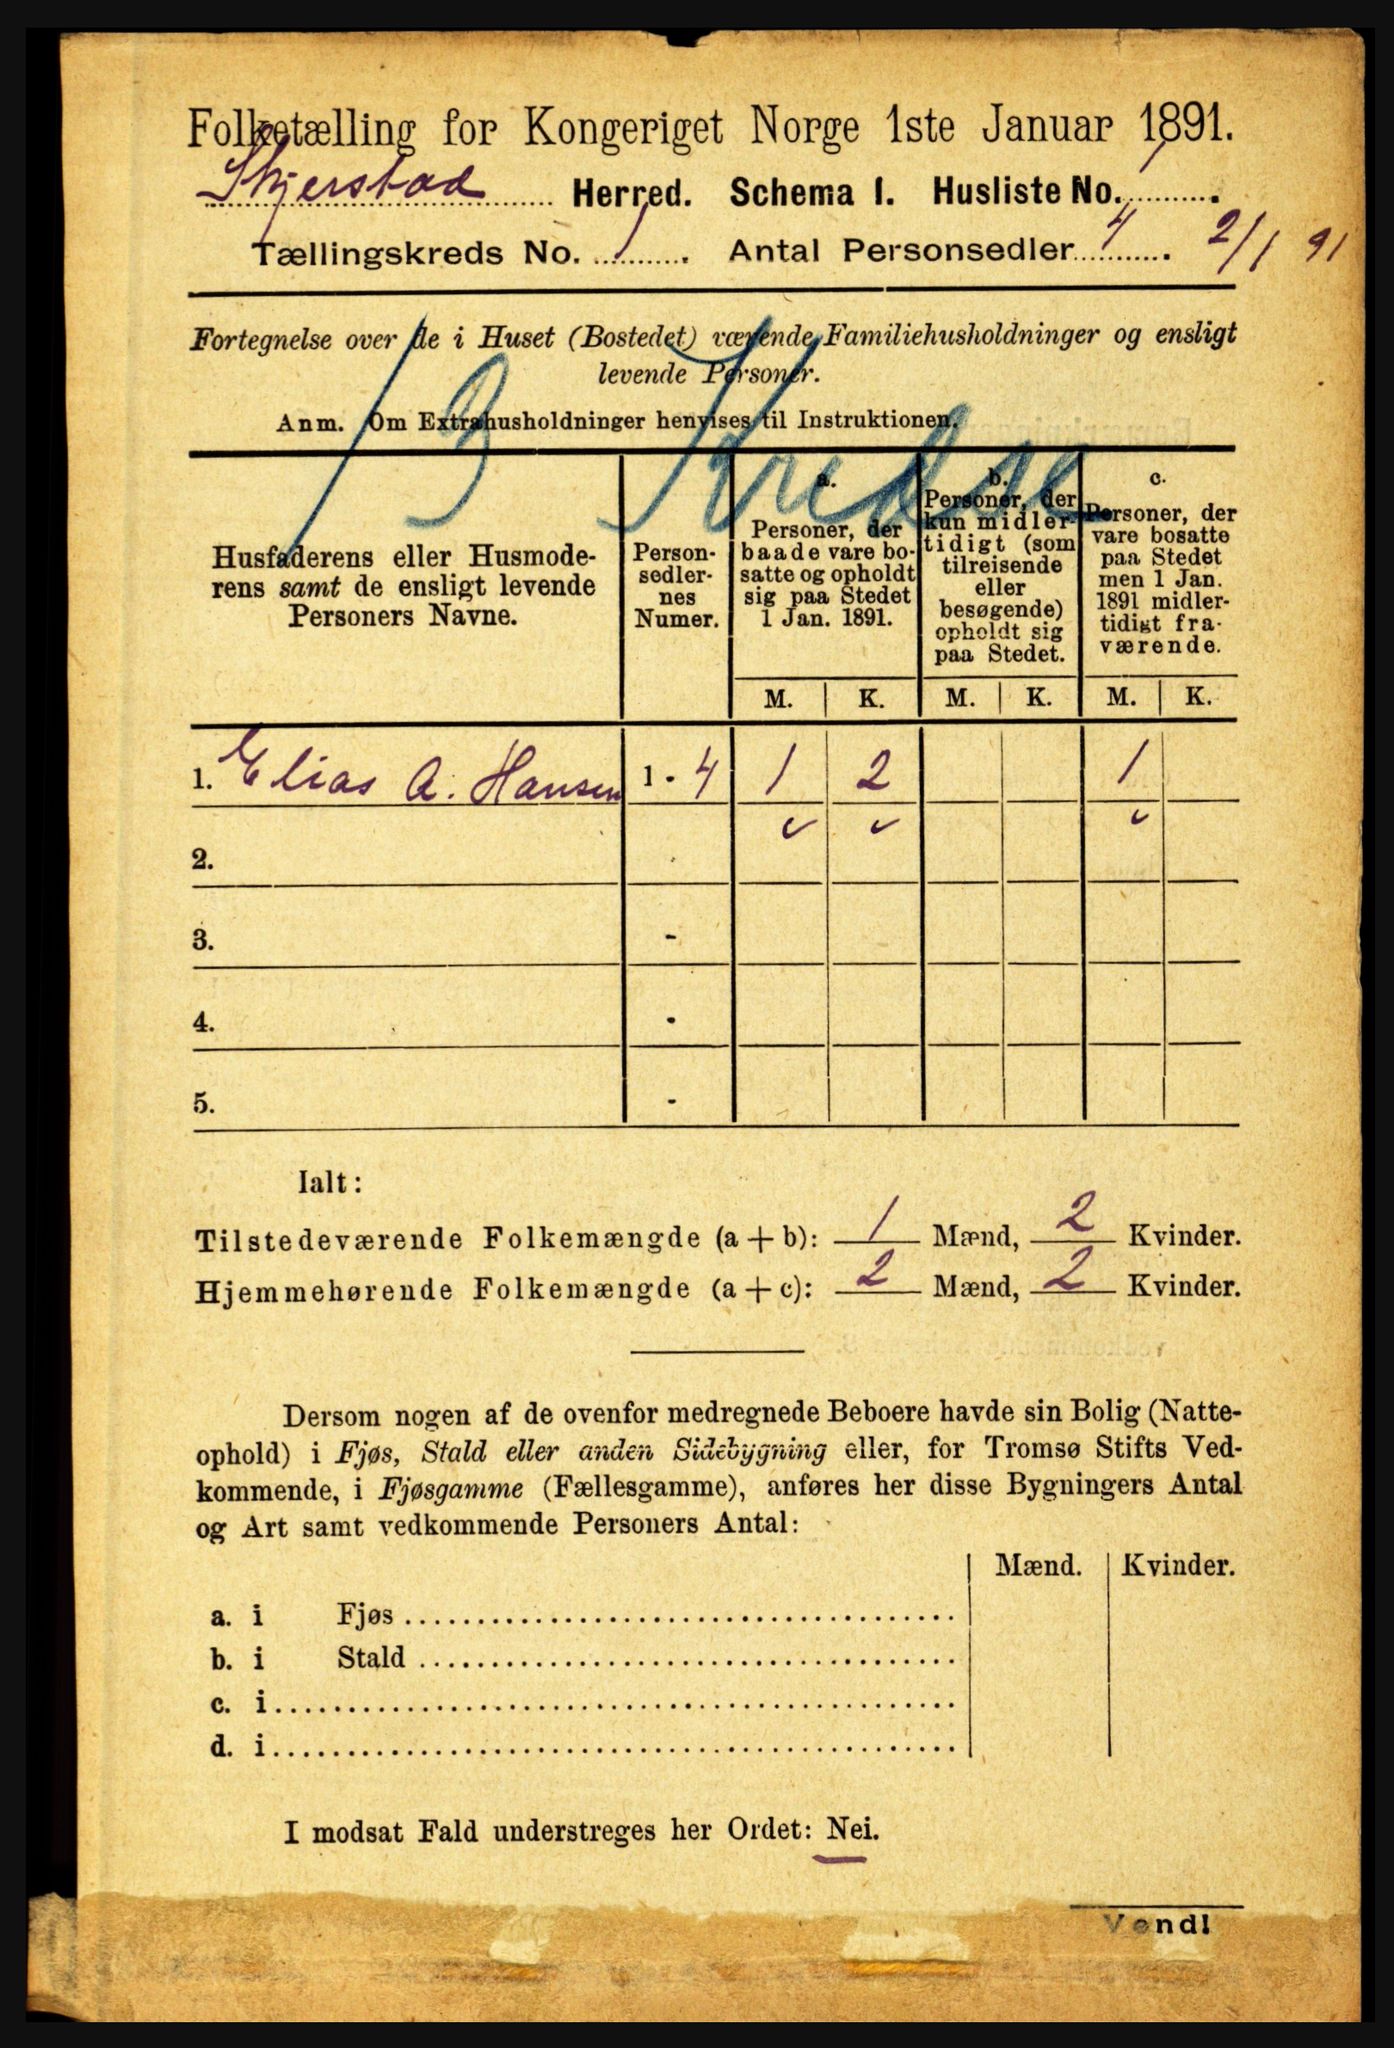 Folketælling for Kongeriget Norge 1ste Januar 1891.
Skjerstad Herred. Schema I. Husliste No. 1.
Tællingskreds No. 1. Antal Personsedler 4. 2/1 91
Fortegnelse over de i Huset (Bostedet) værende Familiehusholdninger og ensligt
levende Personer.
Anm. Om Extrahusholdninger henvises til Instruktionen.
13 Kredse
Husfaderens eller Husmode-
rens samt de ensligt levende
Personers Navne.
Person-
sedler-
nes
Numer.
a.
Personer, der
baade vare bo-
satte og opholdt
sig paa Stedet
1 Jan. 1891.
b.
Personer, der
kun midler-
tidigt (som
tilreisende
eller
besøgende)
opholdt sig
paa Stedet.
c.
Personer, der
vare bosatte
paa Stedet
men 1 Jan.
1891 midler-
tidigt fra-
værende.
M. K. M. K. M. K.
1. Elias A. Hansen 1 - 4 1 2 1
2.
3. -
4. -
5. -
Ialt:
Tilstedeværende Folkemængde (a + b): 1 Mænd, 2 Kvinder.
Hjemmehørende Folkemængde (a + c): 2 Mænd, 2 Kvinder.
Dersom nogen af de ovenfor medregnede Beboere havde sin Bolig (Natte-
ophold) i Fjøs, Stald eller anden Sidebygning eller, for Tromsø Stifts Ved-
kommende, i Fjøsgamme (Fællesgamme), anføres her disse Bygningers Antal
og Art samt vedkommende Personers Antal:
Mænd. Kvinder.
a. i Fjøs
b. i Stald
c. i
d. i
I modsat Fald understreges her Ordet: Nei.
Vend!